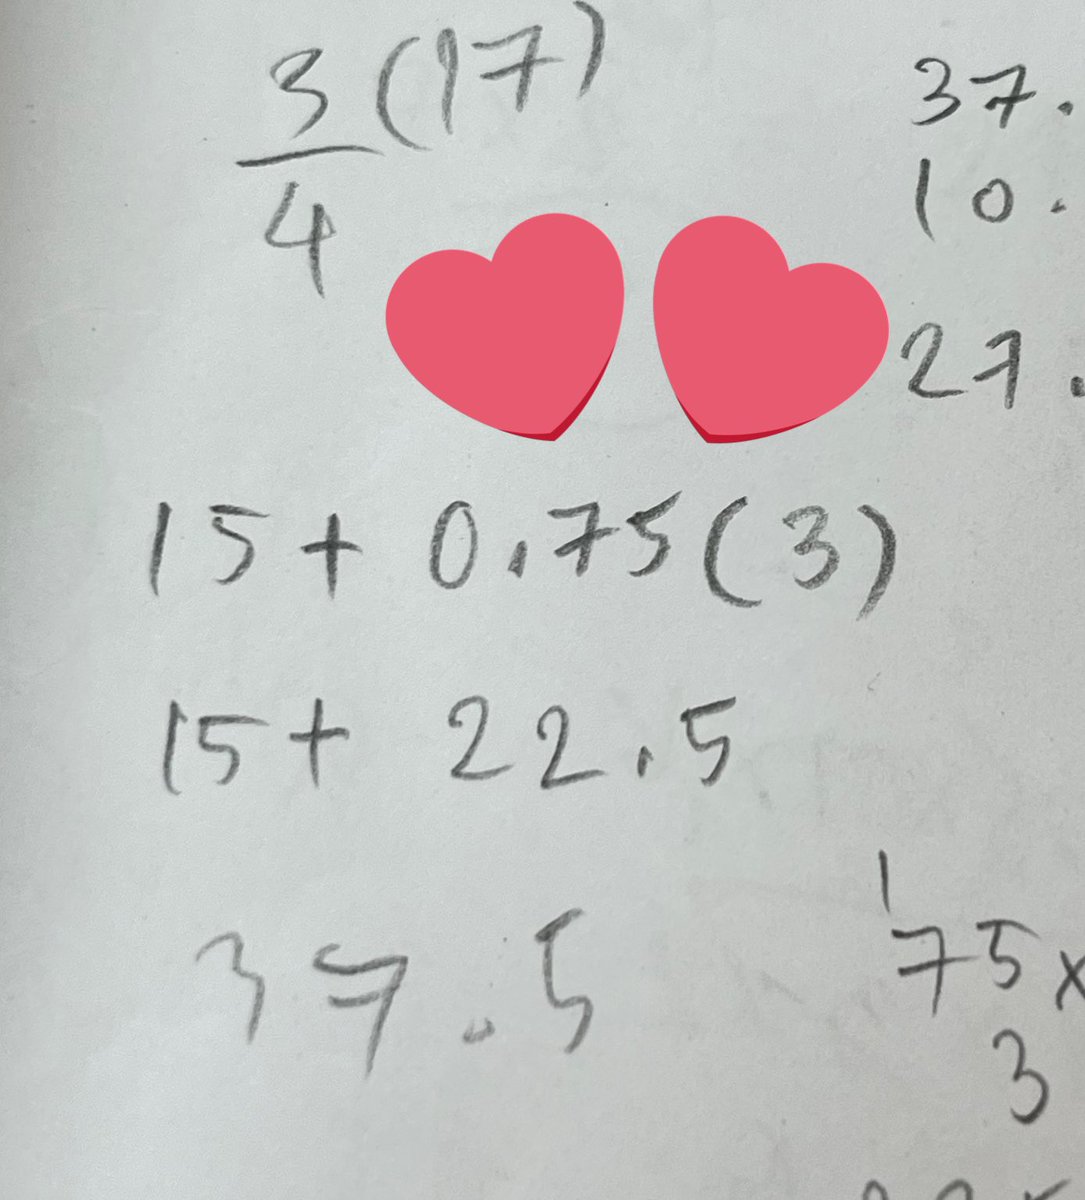 3(17)
4
37.
10.
27.
15+ 0.75(3)
15+ 22.5
37.5
1
75x
3